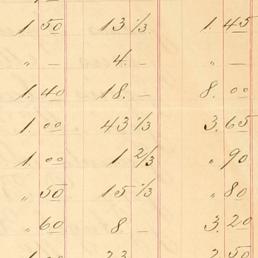 1. 50 13 1/3 1. 45
" — 4. — " —
1. 40 18. — 8. 00
1. 00 43 1/3 3. 65
1. 00 1 2/3 " 90
" 50 15 1/3 " 80
" 60 8 — 3. 20